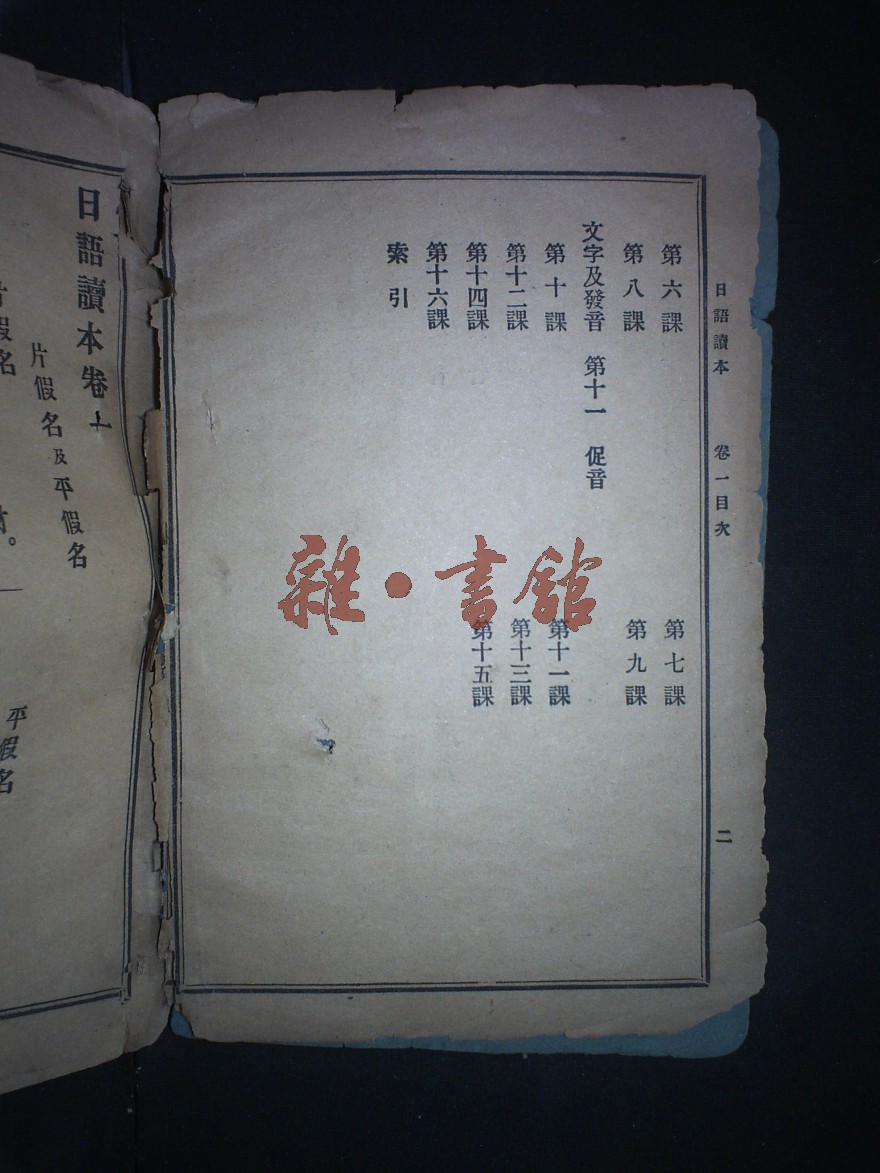 日語讀本　卷一目次
二
第六課
第七課
第八課
第九課
文字及發音　第十一　促音
第十課
第十一課
第十二課
第十三課
第十四課
第十五課
第十六課
索引
雜・書館
日語讀本卷
片假名及平假名
片假名
平假名